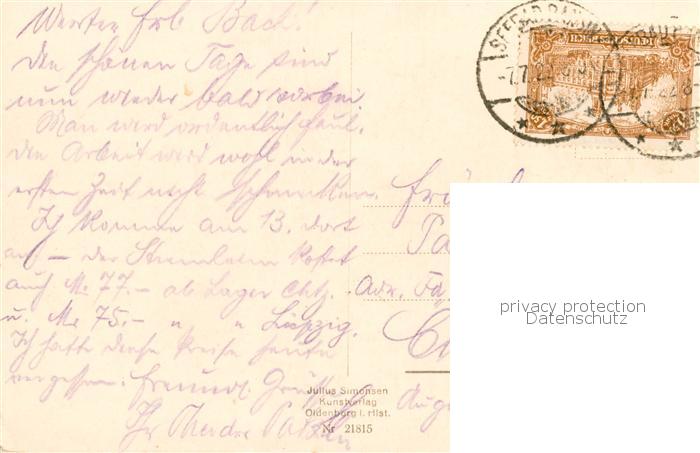 Wertes Frl. Bach!
Die schönen Tage sind
nun wieder bald vorbei.
Man wird ordentlich faul,
die Arbeit wird wohl in der
ersten Zeit nicht schmecken.
Ich komme am 13. dort
an – der kostet
auch M. 77.- ab Lager Chtz.
u. M. 75.- " " Leipzig.
Ich hatte diese Preise heute
vergessen. Freundl. Grüße
Ihr
Adr. Fa.
Julius Simonsen
Kunstverlag
Oldenburg i. Hlst.
Nr 21815
DEUTSCHES REICH
privacy protection
Datenschutz